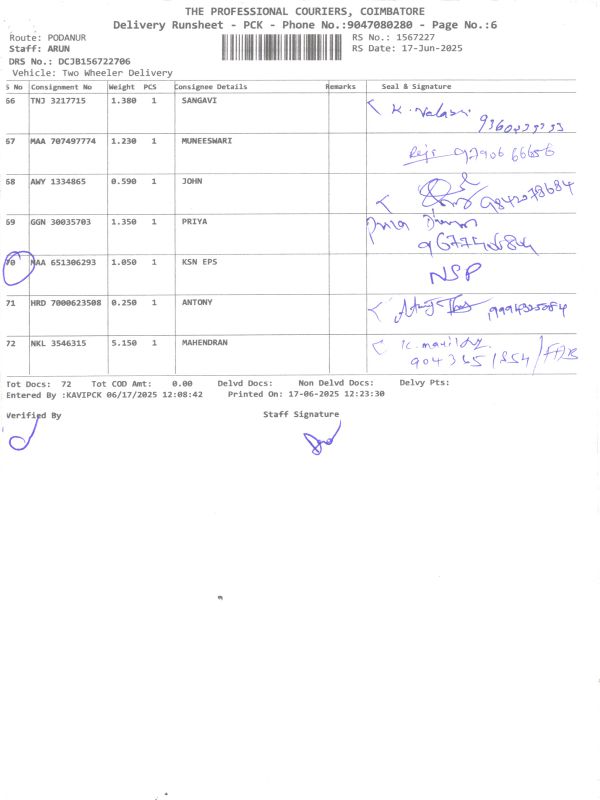 THE PROFESSIONAL COURIERS, COIMBATORE
Delivery Runsheet - PCK - Phone No.:9047080280 - Page No.:6
Route: PODANUR RS No.: 1567227
Staff: ARUN RS Date: 17-Jun-2025
DRS No.: DCJB156722706
Vehicle: Two Wheeler Delivery
S No Consignment No Weight PCS Consignee Details Remarks Seal & Signature
66 TNJ 3217715 1.380 1 SANGAVI
67 MAA 707497774 1.230 1 MUNEESWARI
68 AWY 1334865 0.590 1 JOHN
69 GGN 30035703 1.350 1 PRIYA
70 MAA 651306293 1.050 1 KSN EPS NSP
71 HRD 7000623508 0.250 1 ANTONY
72 NKL 3546315 5.150 1 MAHENDRAN
Tot Docs: 72 Tot COD Amt: 0.00 Delvd Docs: Non Delvd Docs: Delvy Pts:
Entered By :KAVIPCK 06/17/2025 12:08:42 Printed On: 17-06-2025 12:23:30
Verified By Staff Signature